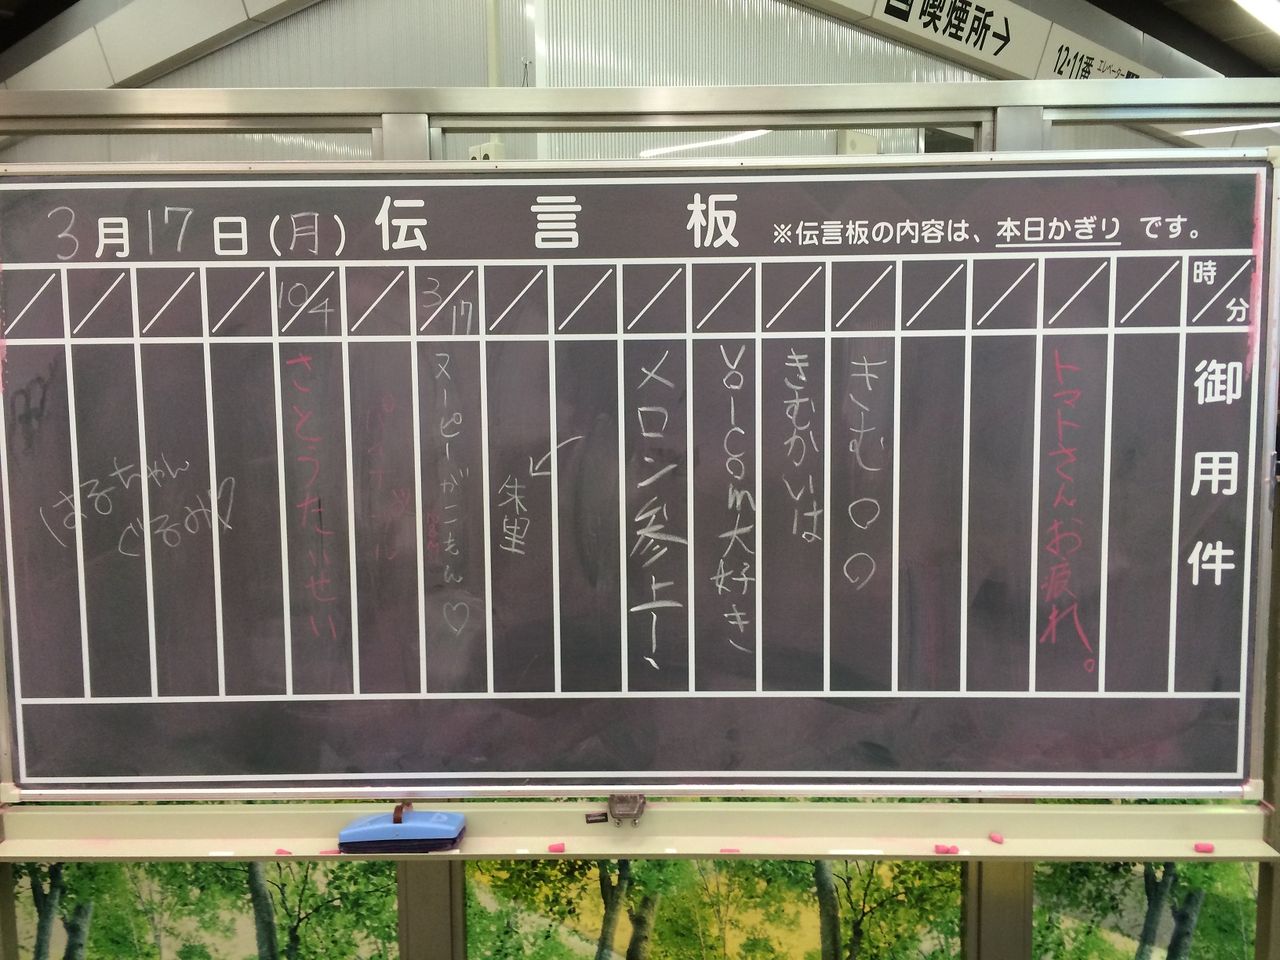 喫煙所→
12・11番 エレベーター
3月17日(月) 伝言板 ※伝言板の内容は、本日かぎり です。
時/分
御用件
トマトさんお疲れ。
きむ〇〇
きむかいは
VolCom大好き
メロン参上ー、
朱里
3/17
ヌーピーがこもん♡
10/4
さとうたいせい
はるちゃん
ぐるみ♡